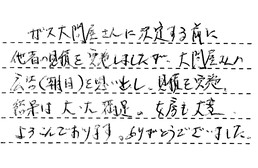 ガス大門屋さんに決定する前に
他者の見積を実施しましたが、大門屋さんの
広告(期日)を思い出し、見積を実施。
結果は大・大満足。女房も大変
よろこんでおります。ありがとうございました。